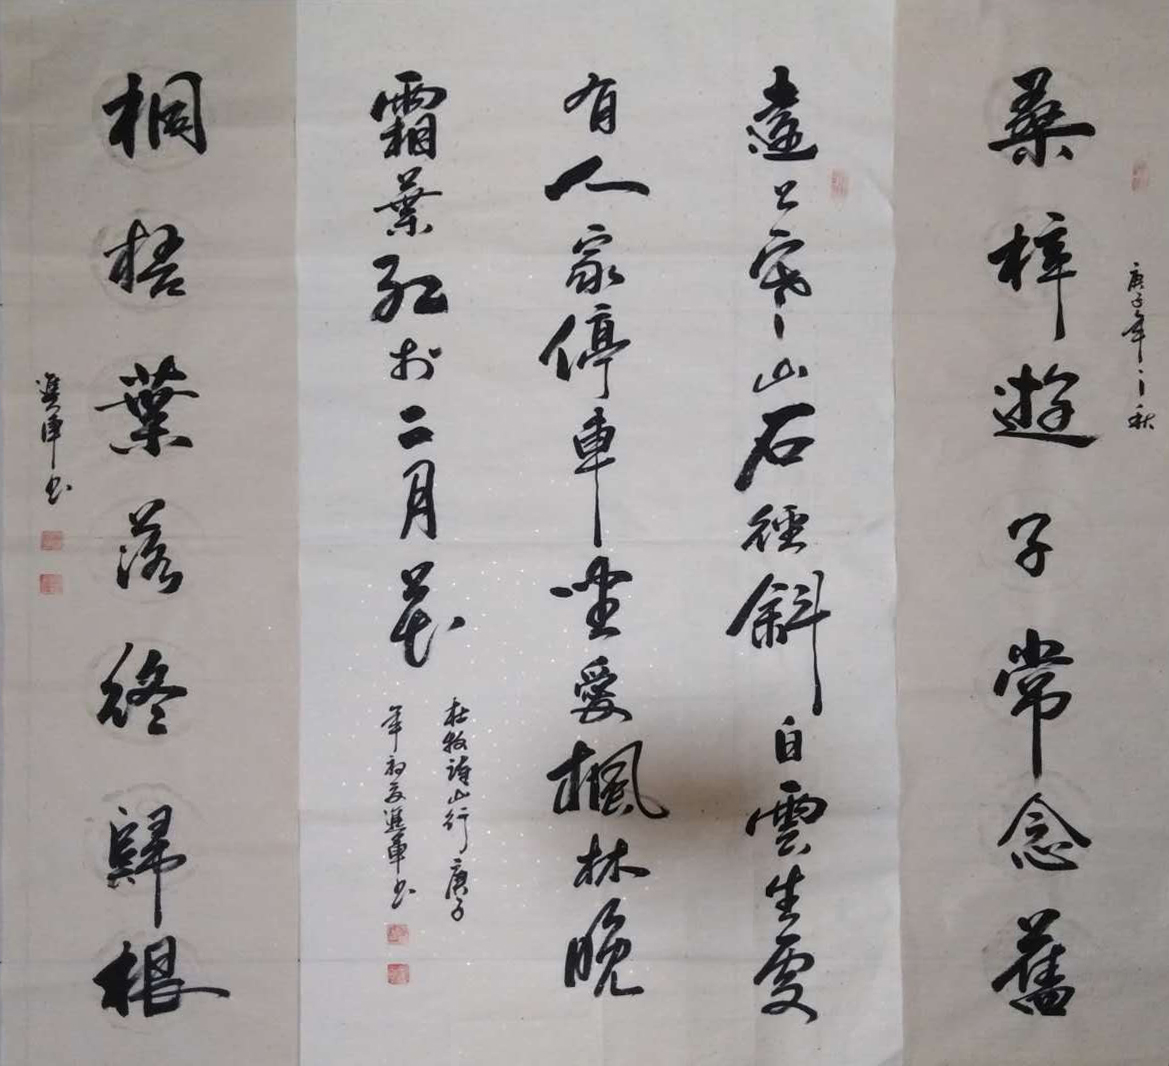 庚子年之秋
桑梓遊子常念舊
遠上寒山石徑斜白雲生處
有人家停車坐愛楓林晚
霜葉紅於二月花
杜牧詩山行庚子
年初夏進軍书
桐梧葉落終歸根
進軍书